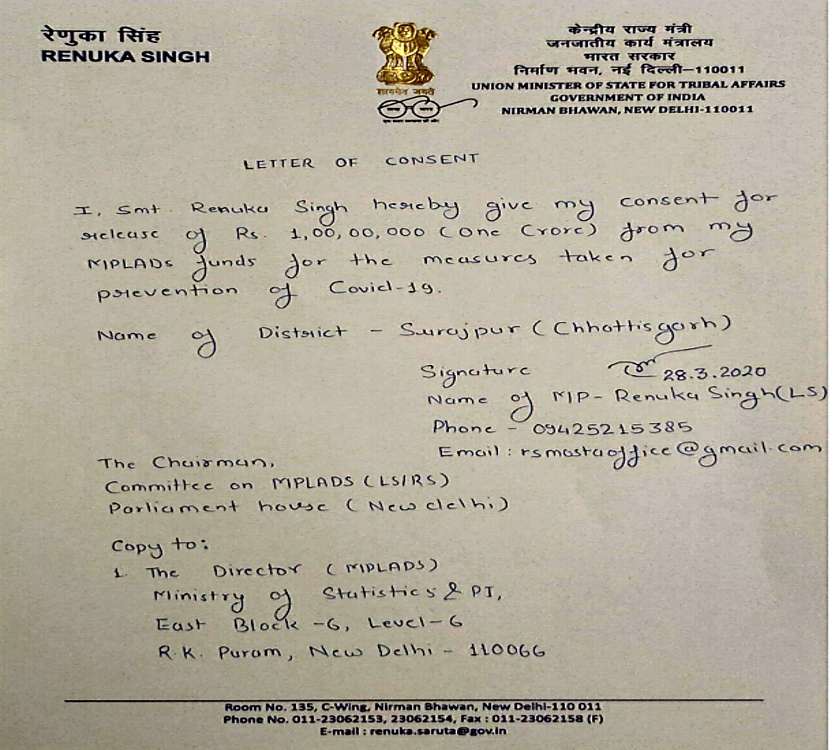 रेणुका सिंह
RENUKA SINGH
सत्यमेव जयते
केन्द्रीय राज्य मंत्री
जनजातीय कार्य मंत्रालय
भारत सरकार
निर्माण भवन, नई दिल्ली–110011
UNION MINISTER OF STATE FOR TRIBAL AFFAIRS
GOVERNMENT OF INDIA
NIRMAN BHAWAN, NEW DELHI-110011
LETTER OF CONSENT
I, Smt. Renuka Singh hereby give my consent for
release of Rs. 1,00,00,000 (One Crore) from my
MPLADs funds for the measures taken for
prevention of Covid-19.
Name of District - Surajpur (Chhattisgarh)
Signature 28.3.2020
Name of MP- Renuka Singh (LS)
Phone - 09425215385
Email : rsmostaoffice@gmail.com
The Chairman,
Committee on MPLADS (LS/RS)
Parliament house (New delhi)
Copy to:
1. The Director (MPLADS)
Ministry of Statistics & PI,
East Block -6, Level-6
R.K. Puram, New Delhi - 110066
Room No. 135, C-Wing, Nirman Bhawan, New Delhi-110 011
Phone No. 011-23062153, 23062154, Fax : 011-23062158 (F)
E-mail : renuka.saruta@gov.in